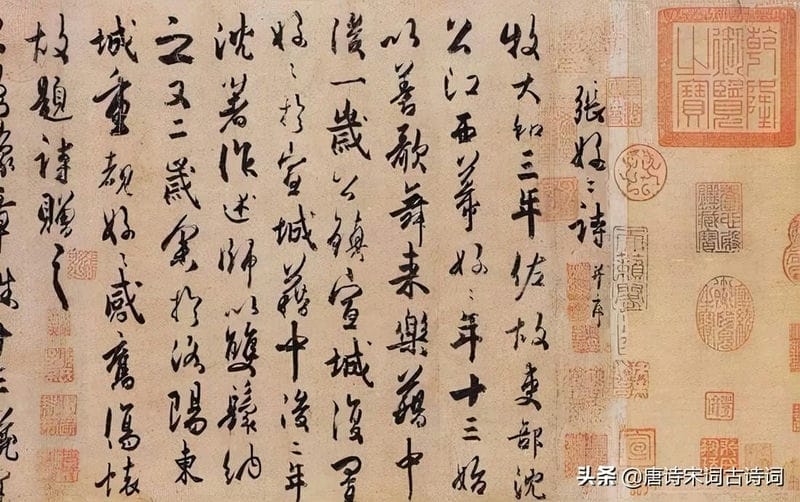 乾隆
御覽
之寶
張好〻詩 并序
牧大和三年佐故吏部沈
公江西幕好〻年十三始
以善歌舞来樂籍中
後一歲公鎮宣城復置
好〻於宣城籍中後二年
沈著作述師以雙鬟納
之又二歲余於洛陽東
城重覩好〻感舊傷懷
故題詩贈之
章姝十三纔
头条 @唐诗宋词古诗词